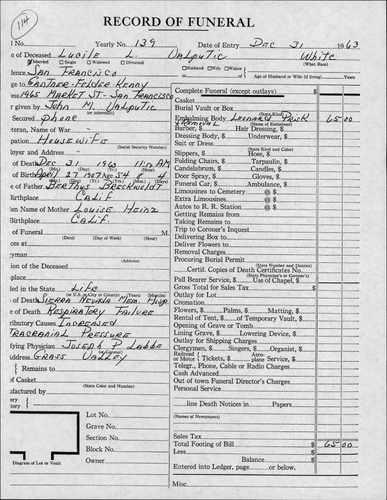 114
RECORD OF FUNERAL
l No. Yearly No. 139 Date of Entry Dec 31 1963
e of Deceased Lucile L. Valputic White
Married Single Widowed Divorced Husband Wife Widow (What Race)
lence San Francisco of Age of Husband or Wife (if living) Years
ge to Gantner-Felder Kenny
ess 1965 Market St - San Francisco
r given by John M. Valputic
(or informant)
Secured Phone
eteran, Name of War -
(Social Security Number)
upation Housewife
loyer and Address -
of Death Dec 31 1963 11:
(Mo.) (Day) (Year) (Hour)
of Birth April 27 1909 Age 54 8 4
(Mo.) (Day) (Year) (Yrs.) (Mos.) (Days)
e of Father Berthus
Birthplace Calif
en Name of Mother Louise Heinz
Birthplace Calif.
of Funeral M.
(Date) (Day of Week) (Hour)
ces at
yman
(Address)
ion of the Deceased
place
led in the State Life
(or U.S. or City or County) (Years)
e of Death Sierra Nevada Mem Hosp
e of Death Respiratory Failure
ributory Causes Increased
Pressure
fying Physician Joseph P Ladde
(or Coroner)
Address Grass Valley
Remains to
of Casket
(State Color and Number)
ufactured by
ery
tory
Lot No.
Grave No.
Section No.
Block No.
Owner
Diagram of Lot or Vault
Complete Funeral (except outlays) $
Burial Vault or Box
(State Kind)
Embalming Body Leonard 65 00
& Removal
(Name of Embalmer)
Barber, $ Hair Dressing, $
Dressing Body, $ Underwear, $
Suit or Dress
(State Kind and Color)
Slippers, $ Hose, $
Folding Chairs, $ Tarpaulin, $
Candelabrum, $ Candles, $
Door Spray, $ Gloves, $
Funeral Car, $ Ambulance, $
Limousines to Cemetery @ $
Extra Limousines @ $
Autos to R. R. Station @ $
Getting Remains from
Taking Remains to
Trip to Coroner's Inquest
Delivering Box to
Deliver Flowers to
Removal Charges
Procuring Burial Permit
(State Number and District)
Certif. Copies of Death Certificates No.
(State Physician's or Coroner's)
Pall Bearer Service, $ Use of Chapel, $
Gross Total for Sales Tax $
Outlay for Lot
Cremation
Flowers, $ Palms, $ Matting, $
Rental of Tent, $ of Temporary Vault, $
Opening of Grave or Tomb
Lining Grave, $ Lowering Device, $
Outlay for Shipping Charges
Clergymen, $ Singers, $ Organist, $
Railroad or Motor Tickets, $ Aeroplane Service, $
Telegr., Phone, Cable or Radio Charges
Cash Advanced
Out of town Funeral Director's Charges
Personal Service
line Death Notices in Papers
(Names of Newspapers)
Sales Tax
Total Footing of Bill $ 65 00
Less
Balance $
Entered into Ledger, page or below.
Misc.